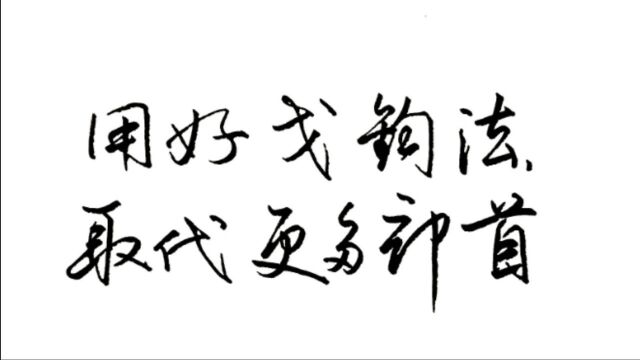 用好戈钩法
取代更多印首